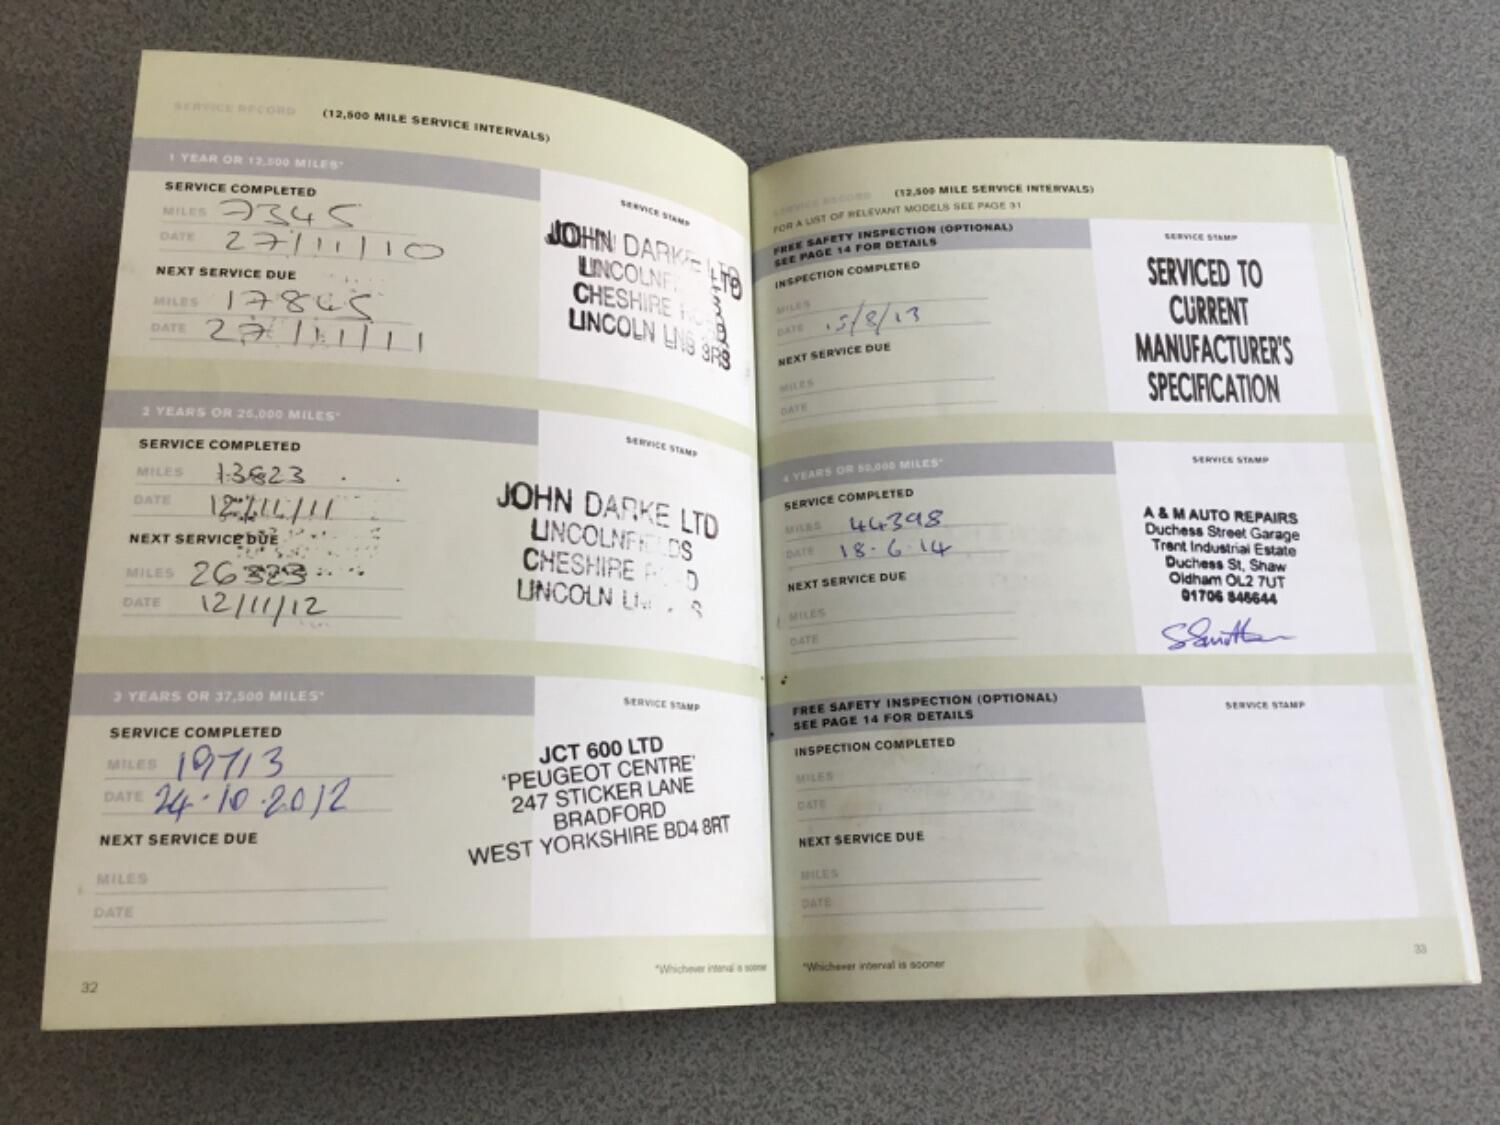 SERVICE RECORD (12,500 MILE SERVICE INTERVALS)
1 YEAR OR 12,500 MILES*
SERVICE COMPLETED
MILES 7345
DATE 27/11/10
NEXT SERVICE DUE
MILES 17845
DATE 27/11/11
SERVICE STAMP
JOHN DARKE LTD
CHESHIRE
LINCOLN LN6 3RS
2 YEARS OR 25,000 MILES*
SERVICE COMPLETED
MILES 13823
DATE
NEXT SERVICE DUE
MILES
DATE 12/11/12
SERVICE STAMP
JOHN DARKE LTD
LINCOLNFIELDS
CHESHIRE
LINCOLN
3 YEARS OR 37,500 MILES*
SERVICE COMPLETED
MILES 19713
DATE 24.10.2012
NEXT SERVICE DUE
MILES
DATE
SERVICE STAMP
JCT 600 LTD
'PEUGEOT CENTRE'
247 STICKER LANE
BRADFORD
WEST YORKSHIRE BD4 8RT
*Whichever interval is sooner
32
SERVICE RECORD (12,500 MILE SERVICE INTERVALS)
FOR A LIST OF RELEVANT MODELS SEE PAGE 31
FREE SAFETY INSPECTION (OPTIONAL)
SEE PAGE 14 FOR DETAILS
INSPECTION COMPLETED
MILES
DATE 15/8/13
NEXT SERVICE DUE
MILES
DATE
SERVICE STAMP
SERVICED TO
CURRENT
MANUFACTURER'S
SPECIFICATION
4 YEARS OR 50,000 MILES*
SERVICE COMPLETED
MILES 44398
DATE 18.6.14
NEXT SERVICE DUE
MILES
DATE
SERVICE STAMP
A & M AUTO REPAIRS
Duchess Street Garage
Trent Industrial Estate
Duchess St, Shaw
Oldham OL2 7UT
01706 846644
FREE SAFETY INSPECTION (OPTIONAL)
SEE PAGE 14 FOR DETAILS
INSPECTION COMPLETED
MILES
DATE
NEXT SERVICE DUE
MILES
DATE
SERVICE STAMP
*Whichever interval is sooner
33